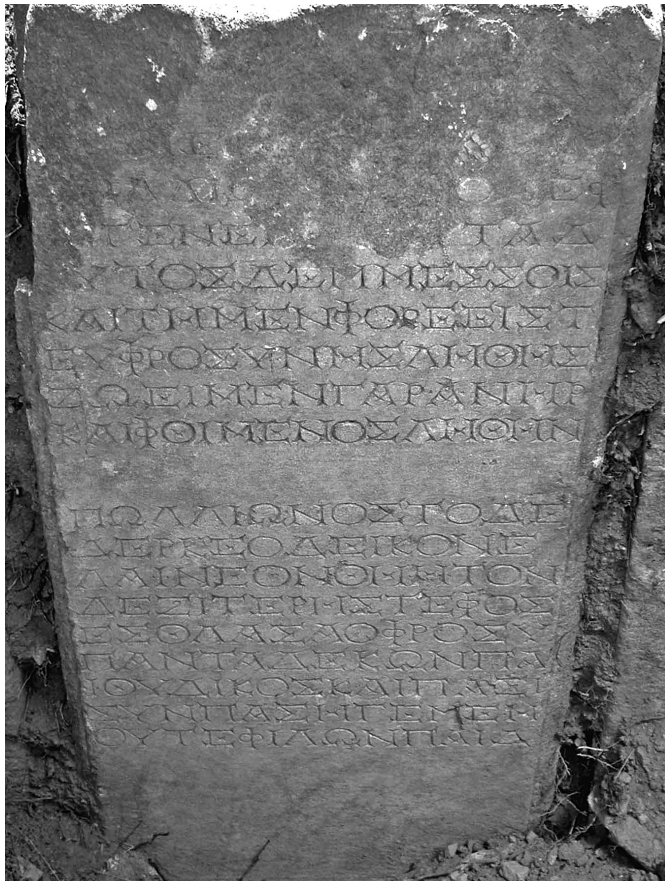 ΕΦ
ΓΕΝΕΙ ΤΑΔ
ΥΤΟΣΔΕΜΜΕΣΣΟΙΣ
ΚΑΙΤΗΜΕΝΦΟΡΕΕΙΣΤ
ΕΥΦΡΟΣΥΝΗΣΛΗΘΗΣ
ΖΩΕΙΜΕΝΓΑΡΑΝΗΡ
ΚΑΙΦΘΙΜΕΝΟΣΛΗΘΗΝ
ΠΩΛΛΙΩΝΟΣΤΟΔΕ
ΔΕΡΚΕΟΔΕΙΚΟΝΕ
ΛΑΙΝΕΟΝΘΝΗΤΟΝ
ΔΕΞΙΤΕΡΗΣΤΕΦΟΣ
ΕΣΘΛΑΣΑΟΦΡΟΣΥ
ΠΑΝΤΑΔΕΚΩΝΠΑ
ΙΘΥΔΙΚΟΣΚΑΙΠΑΣΙ
ΣΥΝΠΑΣΗΓΕΜΕΗ
ΟΥΤΕΦΙΛΩΝΠΑΙΔ